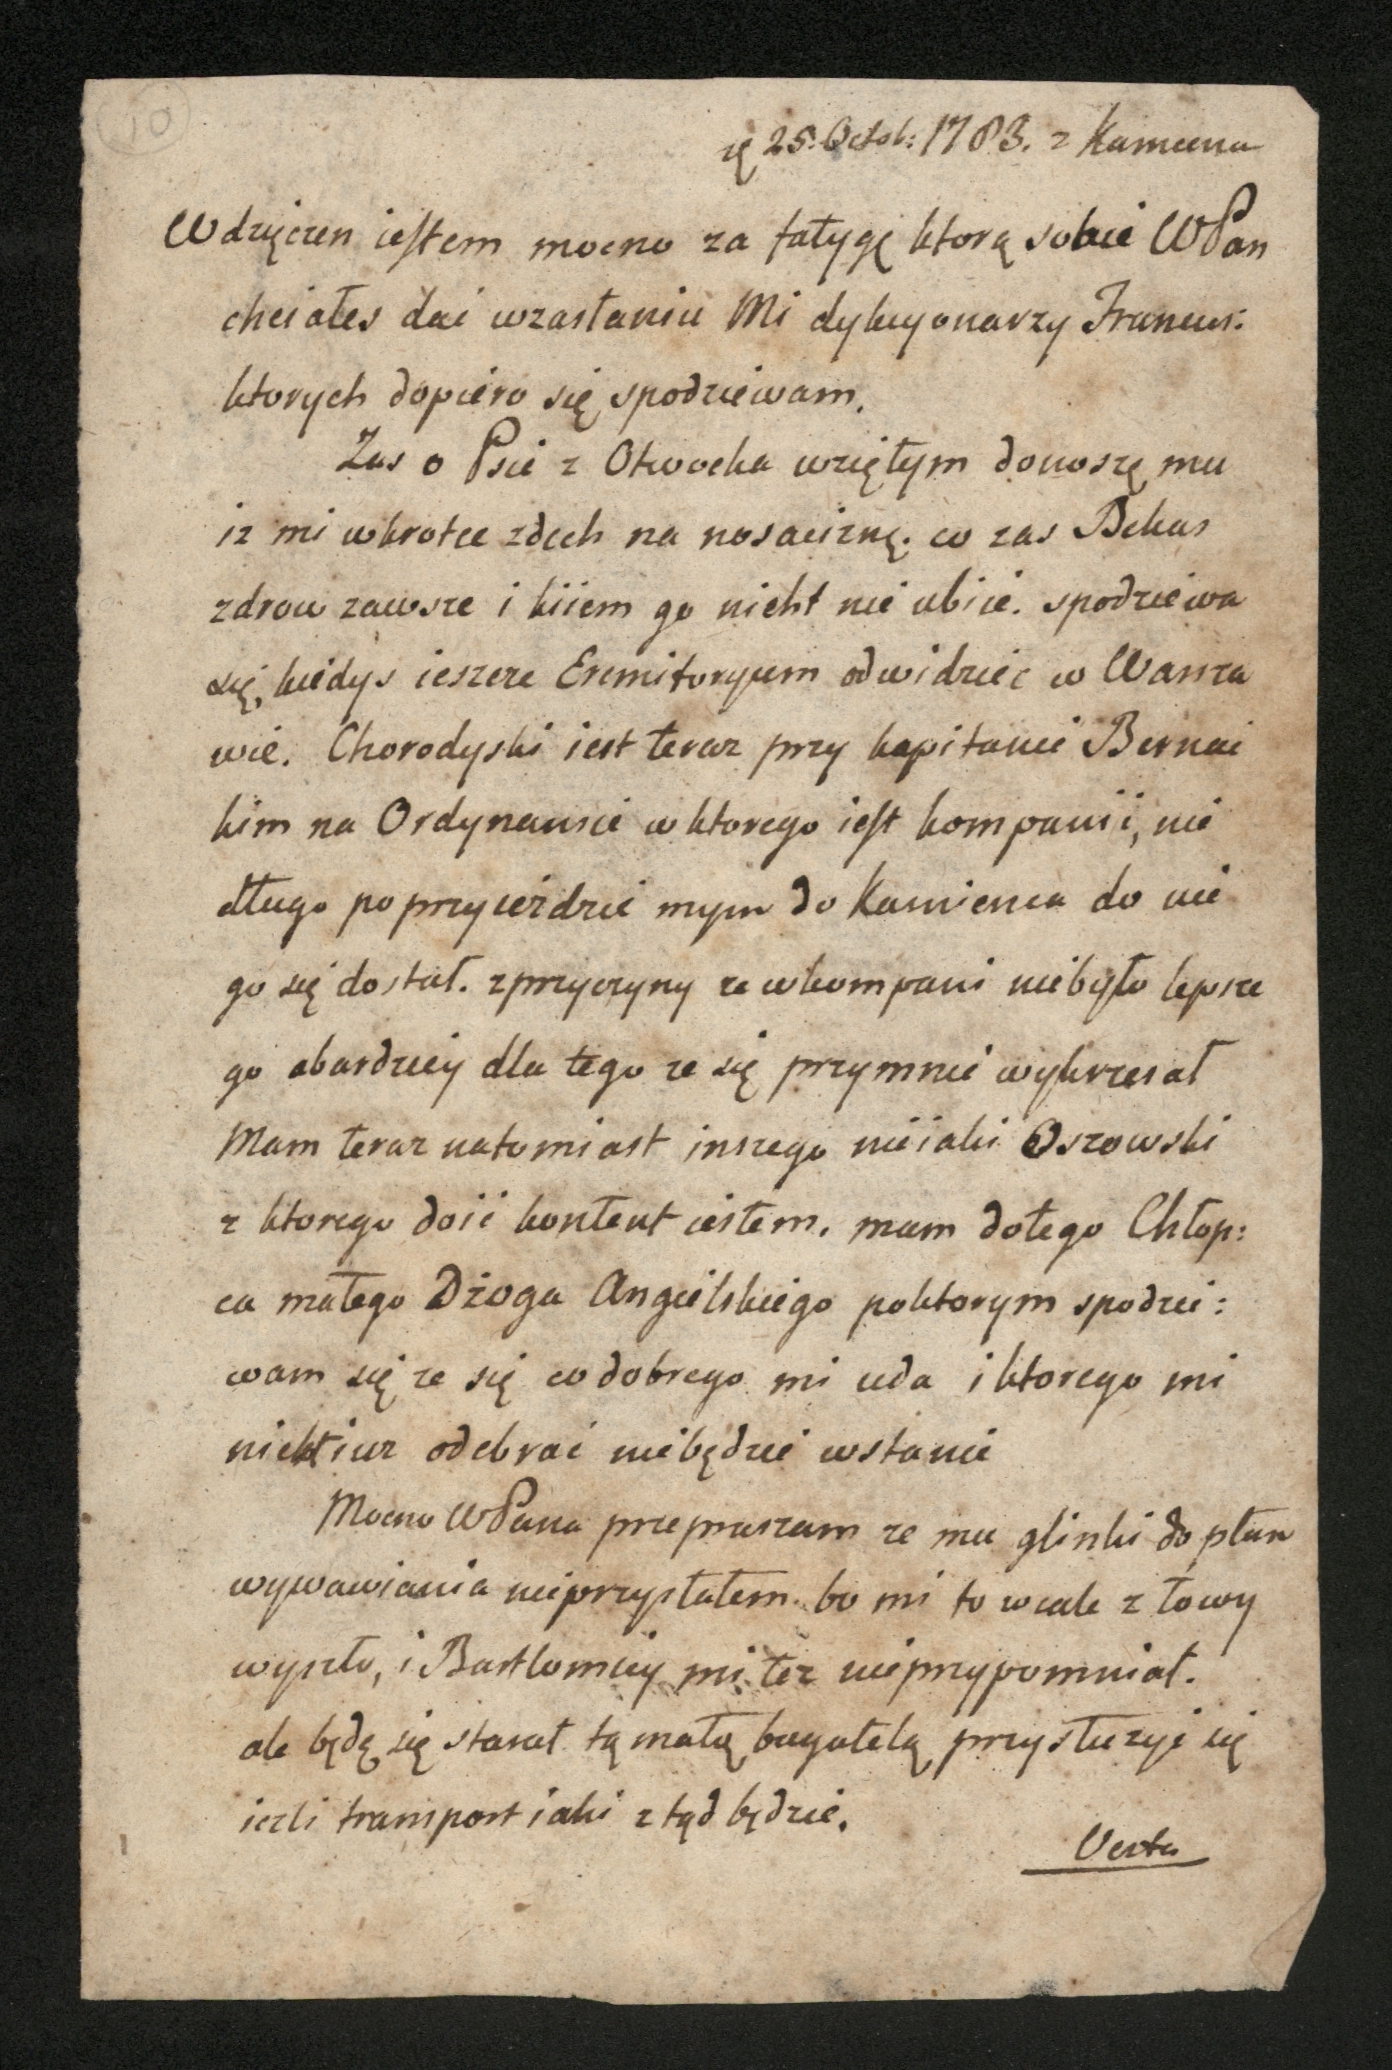 10
25. Octob: 1783. z Kamieńca
Wdzięczen iestem mocno za fatygę ktorą sobie WPan
chciałes dać wzasłaniu Mi dykcyonarzy Francus:
ktorych dopiero się spodziewam.
Zas o Psie z Otwocka wziętym donoszę mu
iz mi wkrotce zdech na nosaciznę. co zas Bekas
zdrow zawsze i kiiem go nicht nie ubiie. spodziewa
się, kiedys ieszcze Eremitoryum odwidziec w Warsza
wie. Chorodyski iest teraz przy kapitanie Bernac
kim na Ordynansie w ktorego iest kompanii, nie
długo po przyieździe mym do Kamienca do nie
go się dostał. zprzyczyny ze wkompani niebyło lepsze
go abardziey dla tego ze się przymnie wykrzesał
Mam teraz natomiast inszego nieiaki Oszowski
z ktorego dość kontent iestem. mam dotego Chłop:
ca małego Dżoga Angielskiego poktorym spodzie:
wam się ze się co dobrego mi uda i ktorego mi
nicht iuz odebrać niebędzie wstanie
Mocno WPana przepraszam ze mu glinki do plam
wywawiania nieprzysłałem. bo mi to wcale z łowy
wyszło, i Bartlomiey mi tez nieprzypomniał.
ale będę się starał tą małą bagatelą przysłużyć się
iezli transport iaki z tąd będzie.
Verte